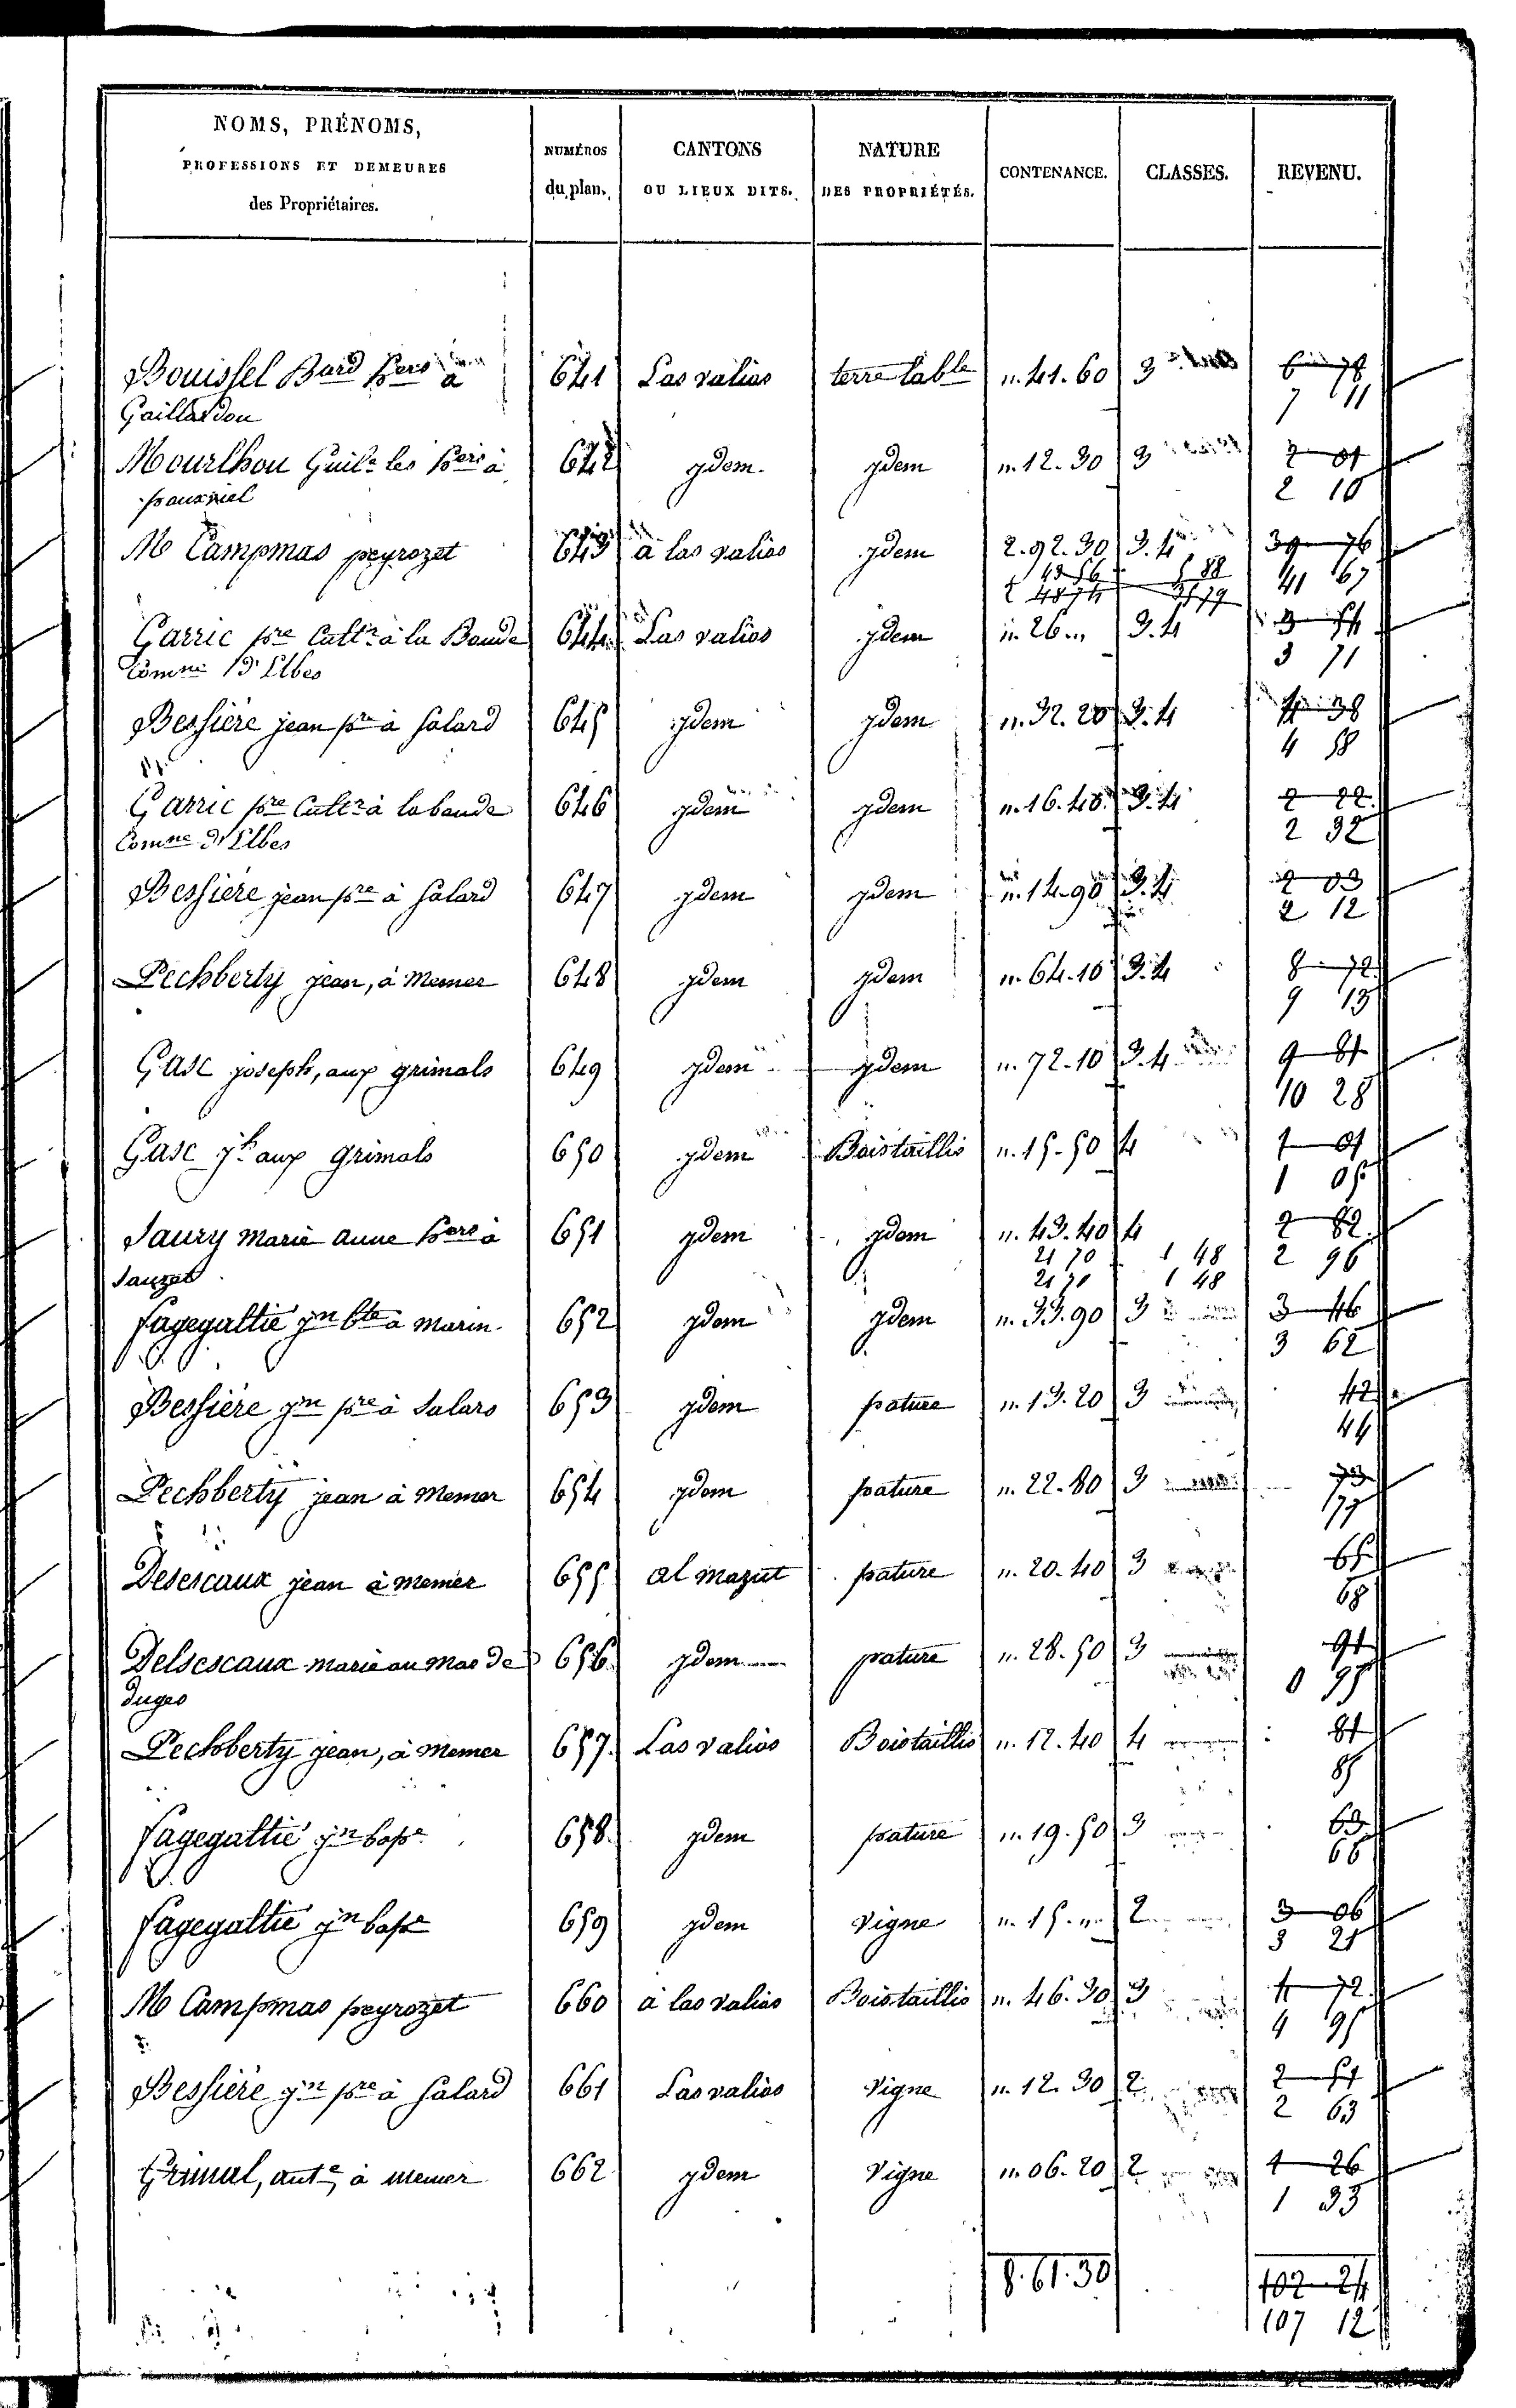 NOMS, PRÉNOMS,
PROFESSIONS ET DEMEURES
des Propriétaires.
NUMÉROS
du plan.
CANTONS
OU LIEUX DITS.
NATURE
DES PROPRIÉTÉS.
CONTENANCE.
CLASSES.
REVENU.
Bouissel Bard hers à 641 Las valias terre labble n. 41. 60 3 6 78
Gaillardou 7 11
Mourlhou Guile les hers à 642 ydem n. 12. 30 3 2 01
2 10
ydem
M Campmas peyrozet 643 à las valias ydem 2. 92. 30 3. 4 39 76
41 67
Garric pre Cultr à la Bande 644 Las valias ydem n. 26. „ 3. 4 3 54
Comne D'Elbes 3 71
Bessière jean pre à Salard 645 ydem ydem n. 32. 20 3. 4 4 38
4 58
Garric pre Cultr à labande 646 ydem ydem n. 16. 40 3. 4 2 22
Comne D'Elbes 2 32
Bessière jean pre à Salard 647 ydem ydem n. 14. 90 3. 4 2 03
2 12
Pechberty jean, à Memer 648 ydem ydem n. 64. 10 3. 4 8 72
9 13
Gasc joseph, aux grimals 649 ydem ydem n. 72. 10 3. 4 9 81
10 28
Gasc jh aux grimals 650 ydem Bois taillis n. 15. 50 4 1 01
1 05
Saury Marie anne hers à 651 ydem ydem n. 43. 40 4 2 82
21 70 1 48 2 96
Sauzet 21 70 1 48
Fagegaltié jn bte à Marin 652 ydem ydem n. 33. 90 3 3 46
3 62
Bessière jn pre à Salars 653 ydem pature n. 13. 20 3 42
44
Pechberty jean à Memer 654 ydem pature n. 22. 80 3 73
77
Desescaux jean à Memer 655 al mazut pature n. 20. 40 3 65
68
Delsescaux Marie au Mas de 656 ydem pature n. 28. 50 3 91
duges 0 95
Pechberty jean, à Memer 657 Las valias Bois taillis n. 12. 40 4 81
85
Fagegaltié jn bapte 658 ydem pature n. 19. 50 3 63
66
Fagegaltié jn bapte 659 ydem Vigne n. 15. „ 2 3 06
3 21
M Campmas peyrozet 660 à las valias Bois taillis n. 46. 30 3 4 72
4 95
Bessière jn pre à Salard 661 Las valias Vigne n. 12. 30 2 2 51
2 63
Grimal, ante, à memer 662 ydem Vigne n. 06. 20 2 1 26
1 33
8. 61. 30 102 24
107 12